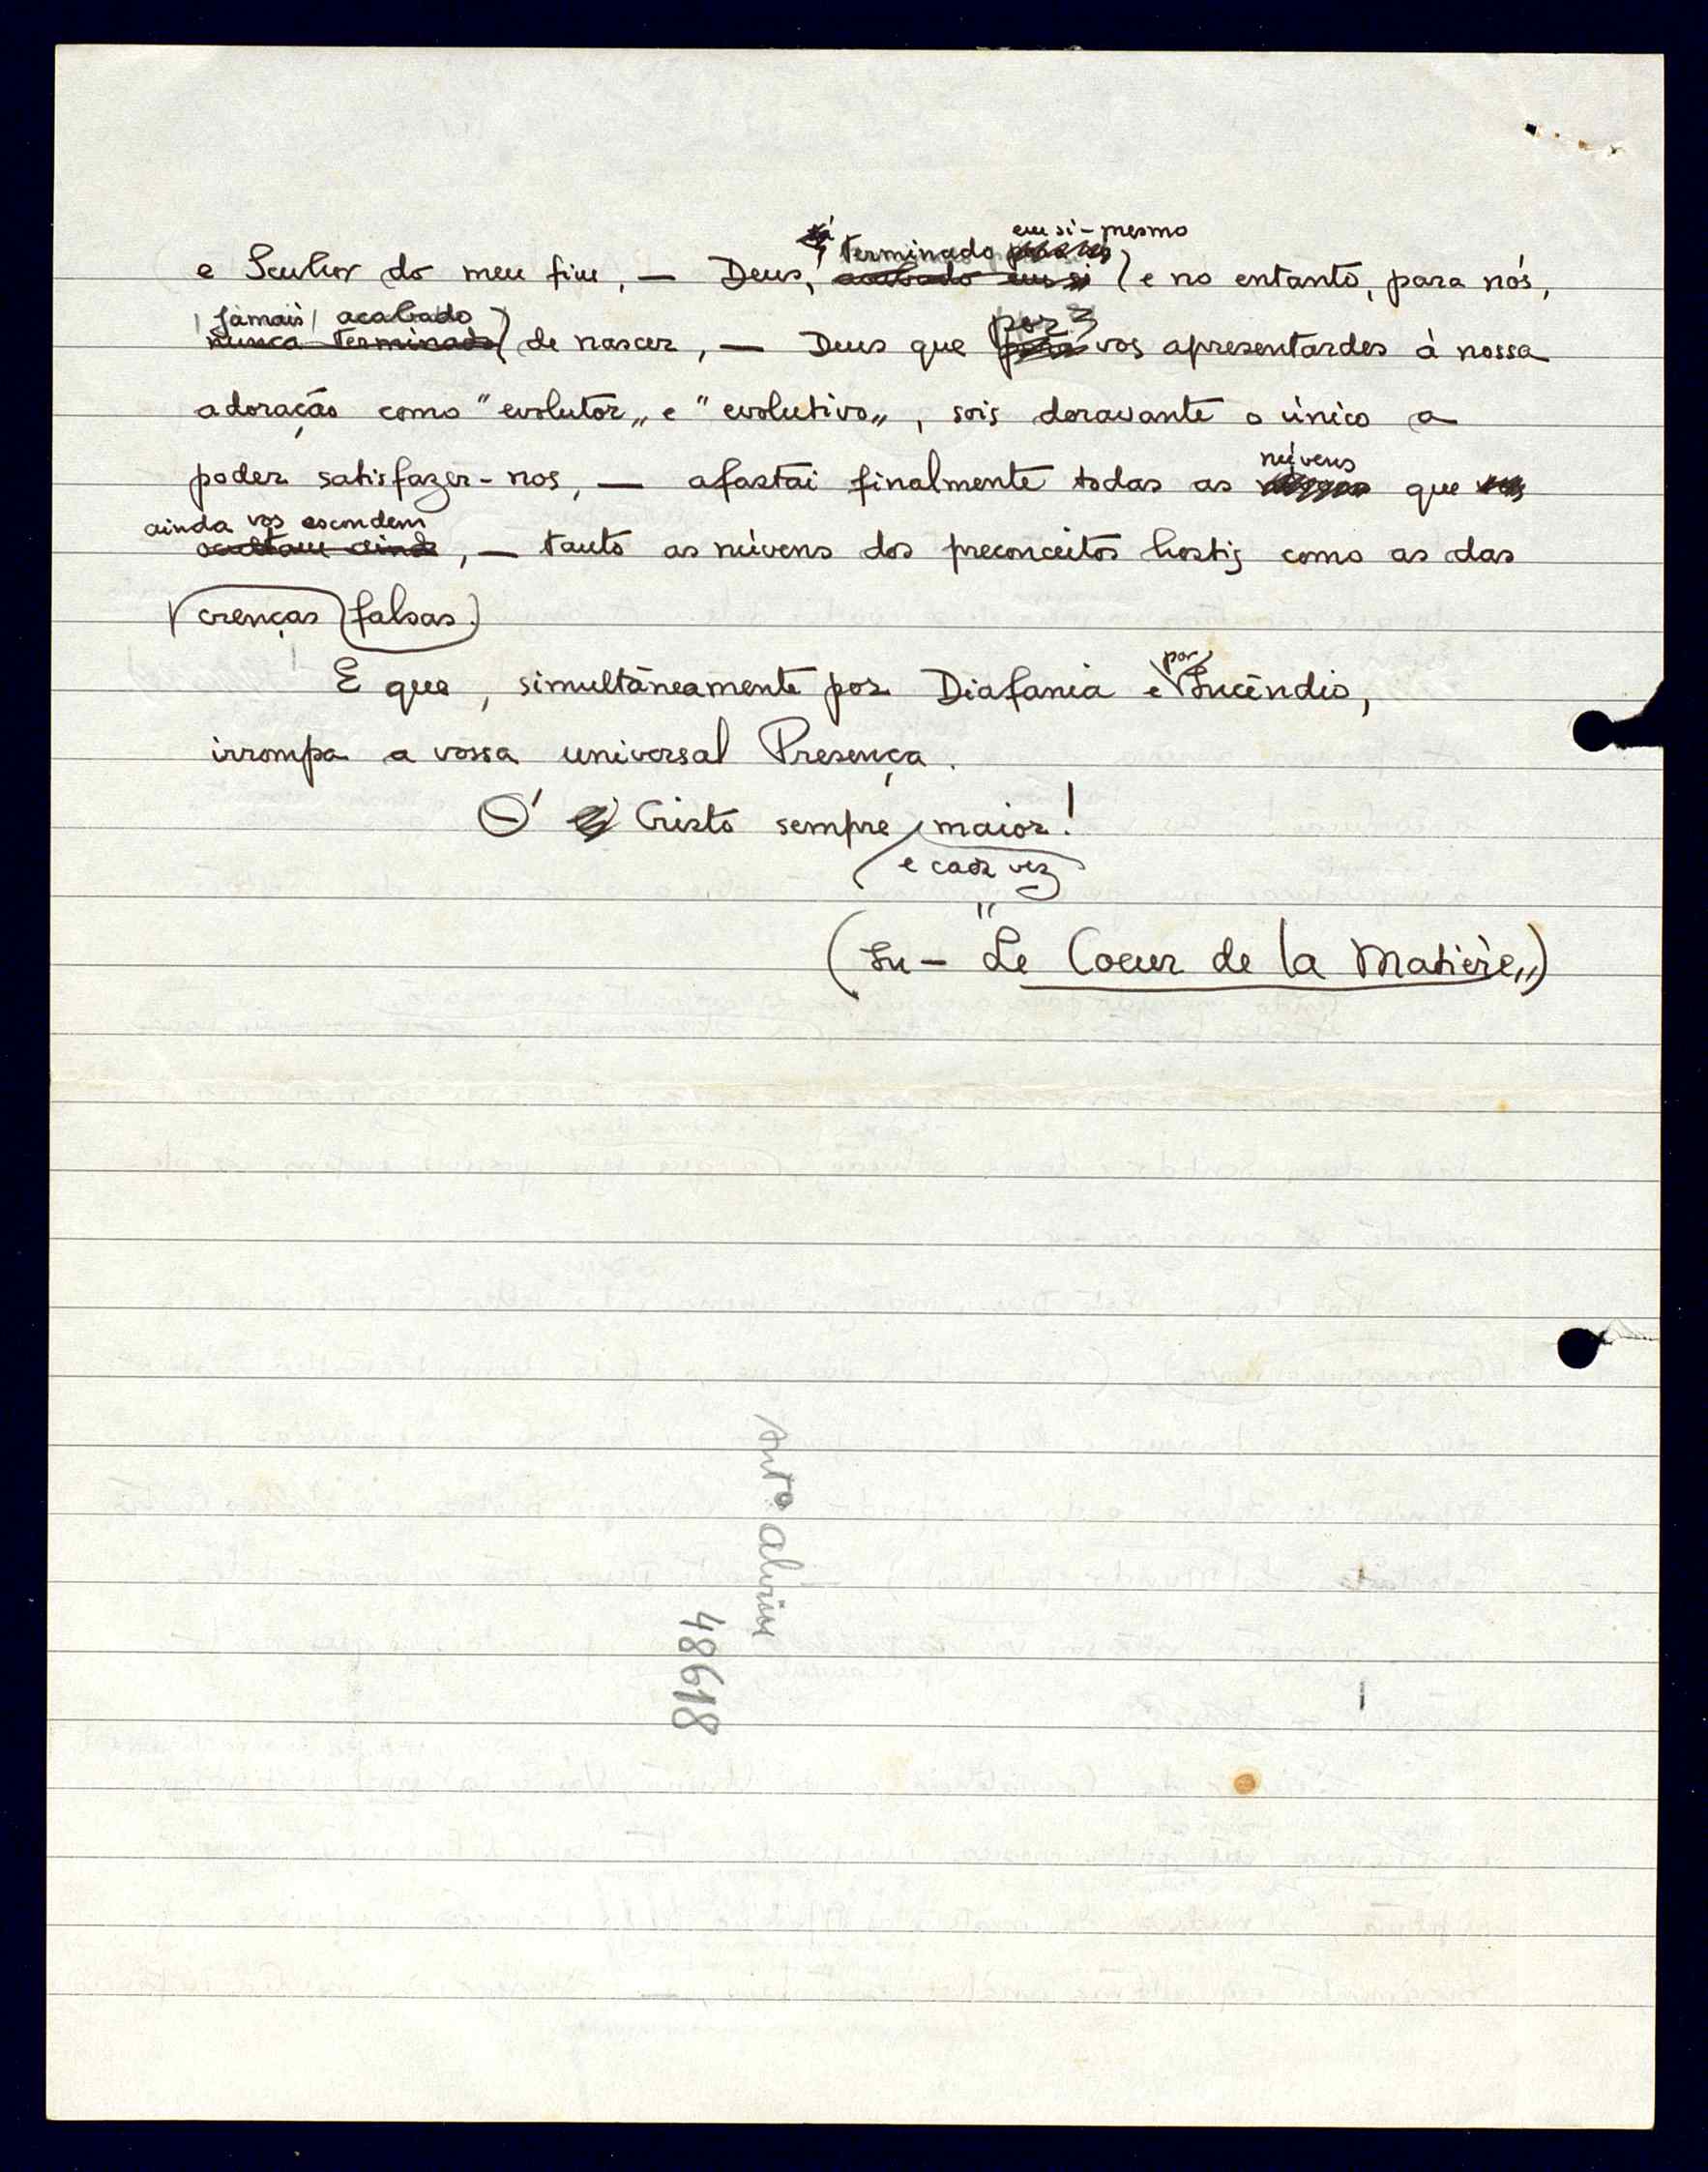 em si-mesmo
terminado
e Senhor do meu fim, — Deus, acabado em si e no entanto, para nós,
jamais acabado
nunca terminado de nascer, — Deus que por vos apresentardes à nossa
adoração como "evolutor„ e "evolutivo„, sois doravante o único a
núvens
poder satisfazer-nos, — afastai finalmente todas as que
ainda vos escondem
ocultam ainda, — tanto as núvens dos preconceitos hostis como as das
crenças falsas.
por
E que, simultâneamente por Diafania e Incêndio,
irrompa a vossa universal Presença.
Ó Cristo sempre maior!
e cada vez
(In - "Le Coeur de la Matière„)
48618